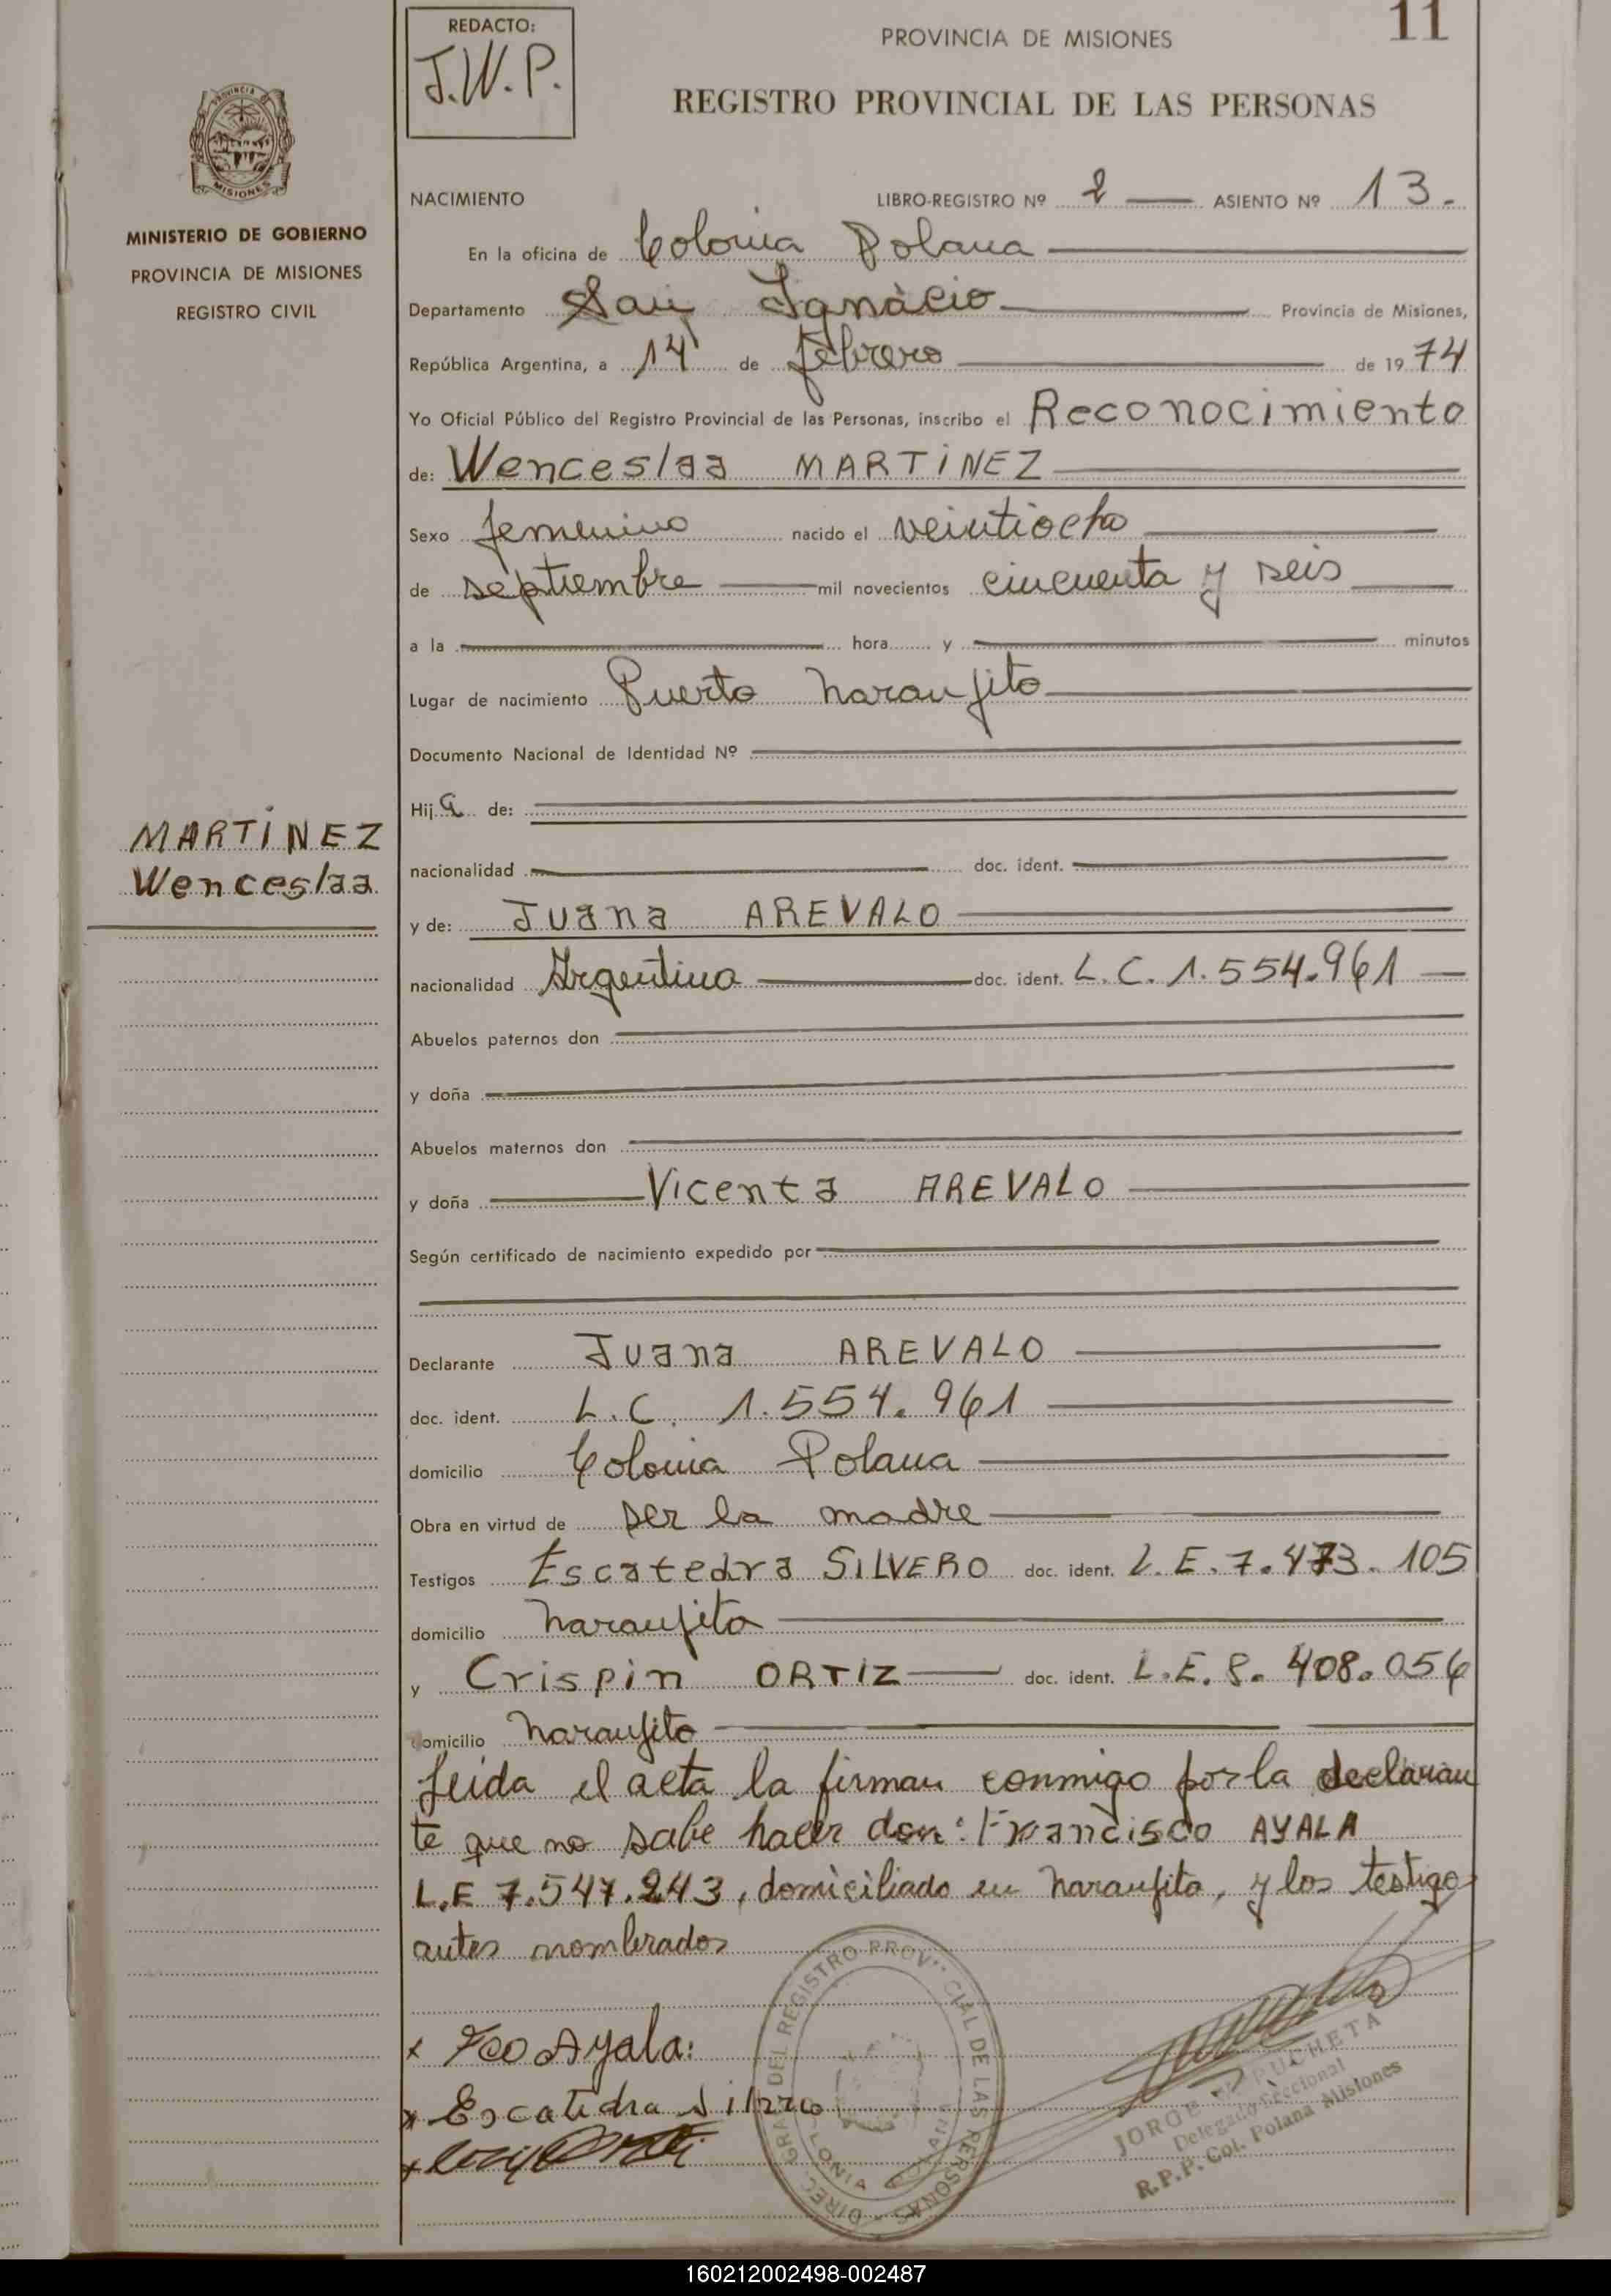 11
REDACTO:
J.W.P.
PROVINCIA DE MISIONES
REGISTRO PROVINCIAL DE LAS PERSONAS
PROVINCIA DE
MISIONES
MINISTERIO DE GOBIERNO
PROVINCIA DE MISIONES
REGISTRO CIVIL
MARTINEZ
Wenceslaa
NACIMIENTO LIBRO-REGISTRO Nº 2 ASIENTO Nº 13.
En la oficina de Colonia Polana
Departamento San Ignacio Provincia de Misiones,
República Argentina, a 14 de febrero de 1974
Yo Oficial Público del Registro Provincial de las Personas, inscribo el Reconocimiento
de: Wenceslaa MARTINEZ
Sexo femenino nacido el veintiocho
de septiembre mil novecientos cincuenta y seis
a la hora y minutos
Lugar de nacimiento Puerto Naranjito
Documento Nacional de Identidad Nº
Hija de:
nacionalidad doc. ident.
y de: Juana AREVALO
nacionalidad Argentina doc. ident. L.C. 1.554.961
Abuelos paternos don
y doña
Abuelos maternos don
y doña Vicenta AREVALO
Según certificado de nacimiento expedido por
Declarante Juana AREVALO
doc. ident. L.C. 1.554.961
domicilio Colonia Polana
Obra en virtud de ser la madre
Testigos Escatedra SILVERO doc. ident. L.E. 7.473.105
domicilio Naranjito
y Crispin ORTIZ doc. ident. L.E. 8.408.056
domicilio Naranjito
Leida el acta la firman conmigo por la declaran
te que no sabe hacer don: Francisco AYALA
L.E 7.547.243, domiciliado en Naranjito, y los testigos
antes nombrados
x Fco Ayala:
x Escatedra Silvero
DIREC. GRAL DEL REGISTRO PROVINCIAL DE LAS PERSONAS
COLONIA POLANA
JORGE W. PUCHETA
Delegado Seccional
R.P.P. Col. Polana Misiones
160212002498-002487